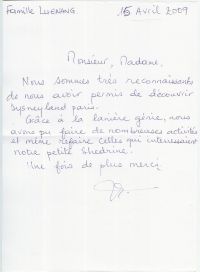 Famille LUENANG
15 Avril 2009
Monsieur, Madame,
Nous sommes très reconnaissants
de nous avoir permis de découvrir
Dysneyland paris.
Grâce à la lanière génie, nous
avons pu faire de nombreuses activités
et même refaire celles qui interessaient
notre petite Shedrine.
Une fois de plus merci